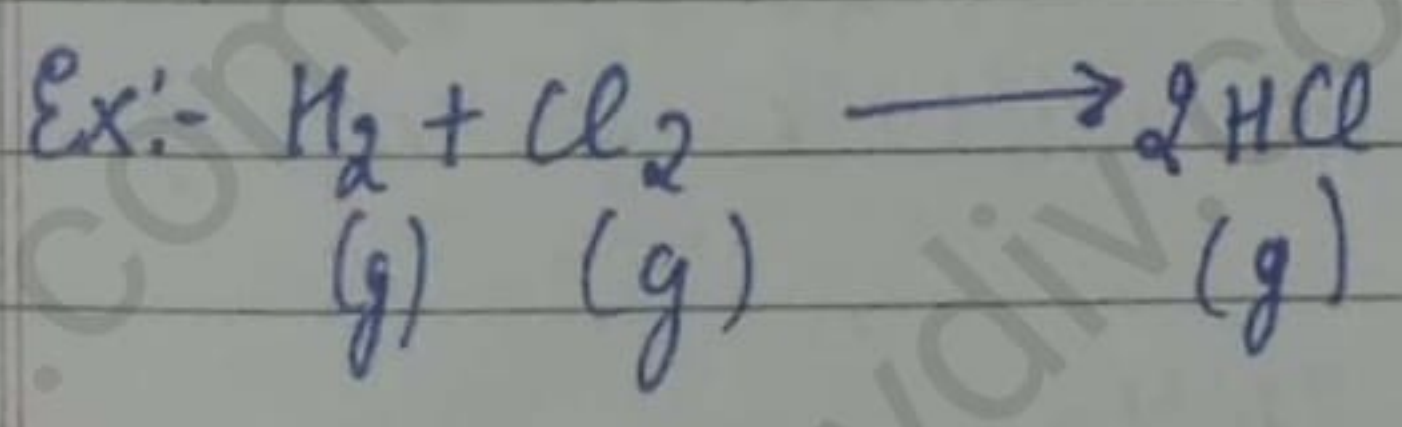 Ex:- H₂ + Cl₂ ⟶ 2HCl
(g) (g) (g)
.com